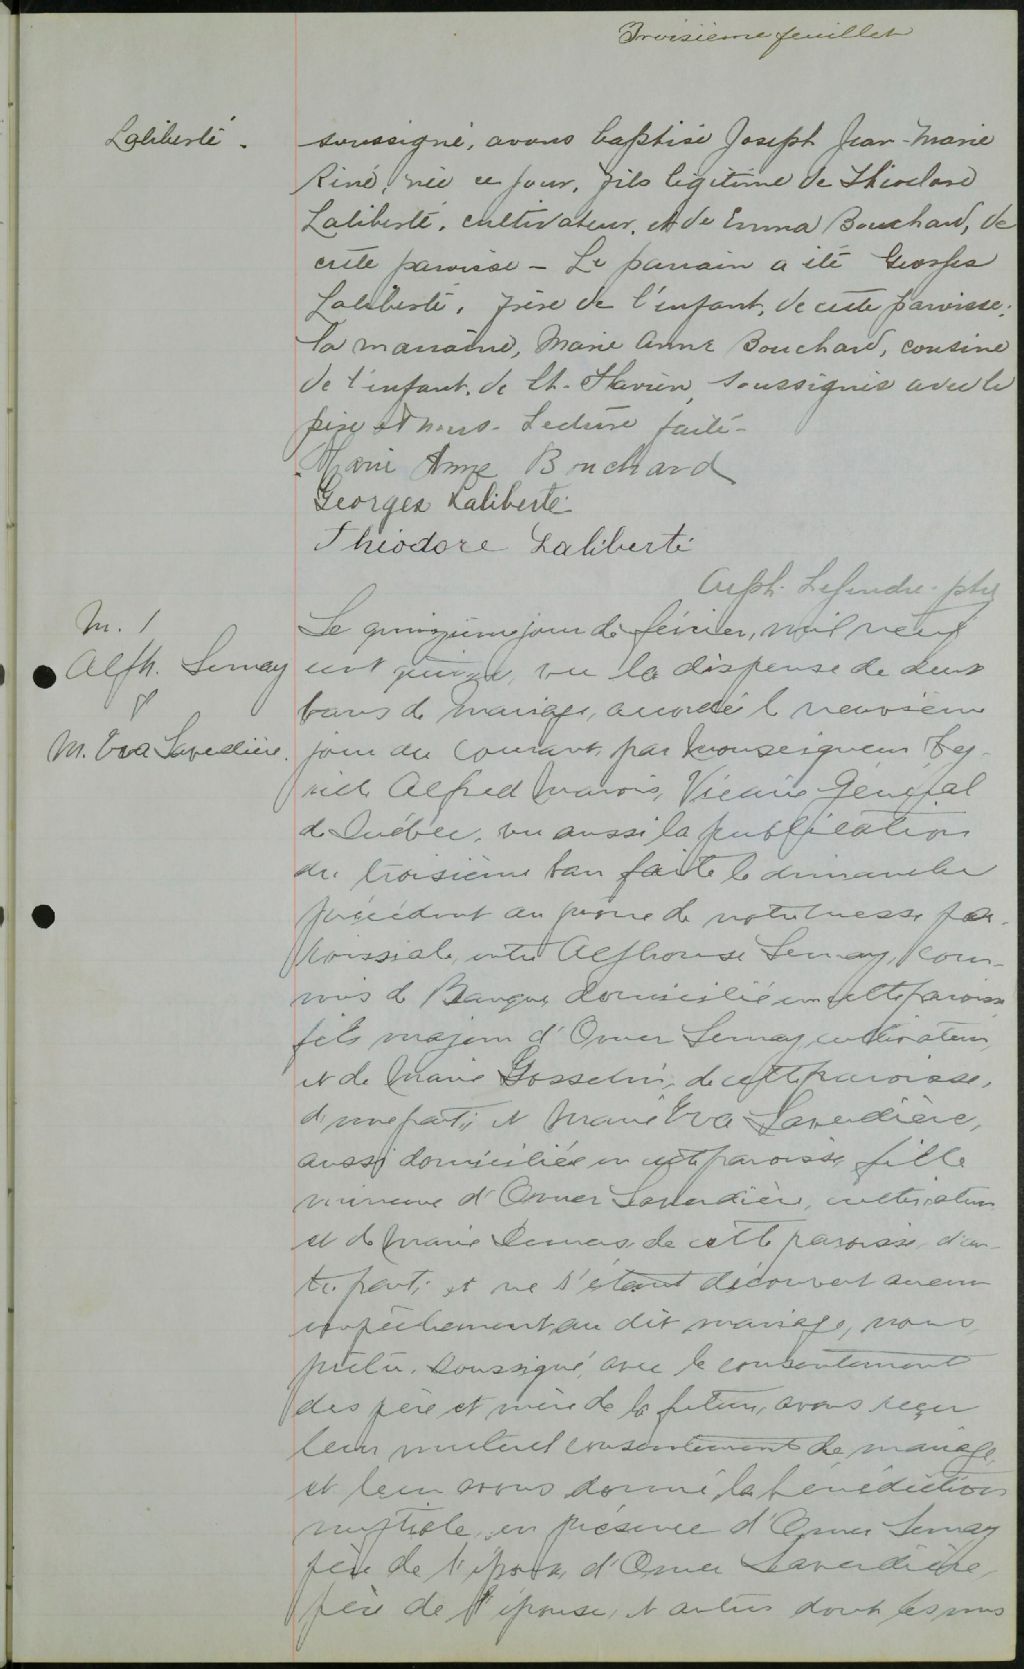 Troisième feuillet
Laliberté.
soussigné, avons baptisé Joseph Jean-Marie
René, née ce jour, fils légitime de Théodore
Laliberté, cultivateur, et de Emma Bouchard, de
cette paroisse - Le parrain a été Georges
Laliberté, frère de l'enfant, de cette paroisse;
la marraine, Marie Anne Bouchard, cousine
de l'enfant, de St-Flavien, soussignés avec le
père et nous. Lecture faite-
Marie Anne Bouchard
Georges Laliberté
Théodore Laliberté
Alph. Legendre ptre
M. 1
Alph. Lemay
&
M. Eva Laverdière.
Le quinzième jour de février, mil neuf
cent quinze, vu la dispense de deux
bans de mariage, accordé le neuvième
jour du courant, par Monseigneur Cy-
rille Alfred Marois, Vicaire Général
de Québec, vu aussi la publication
du troisième ban faite le dimanche
précédent au prône de notre messe pa-
roissiale, entre Alphonse Lemay, com-
mis de Banque, domicilié en cette paroisse
fils majeur d'Omer Lemay, cultivateur,
et de Marie Gosselin, de cette paroisse,
d'une part; et Marie Eva Laverdière,
aussi domiciliée en cette paroisse, fille
mineure d'Omer Laverdière, cultivateur
et de Marie Demers de cette paroisse d'au-
tre part; et ne s'étant découvert aucun
empêchement au dit mariage, nous,
prêtre soussigné, avec le consentement
des père et mère de la future, avons reçu
leur mutuel consentement de mariage,
et leur avons donné la bénédiction
nuptiale, en présence d'Omer Lemay
père de l'époux, d'Omer Laverdière,
père de l'épouse, et autres dont les uns